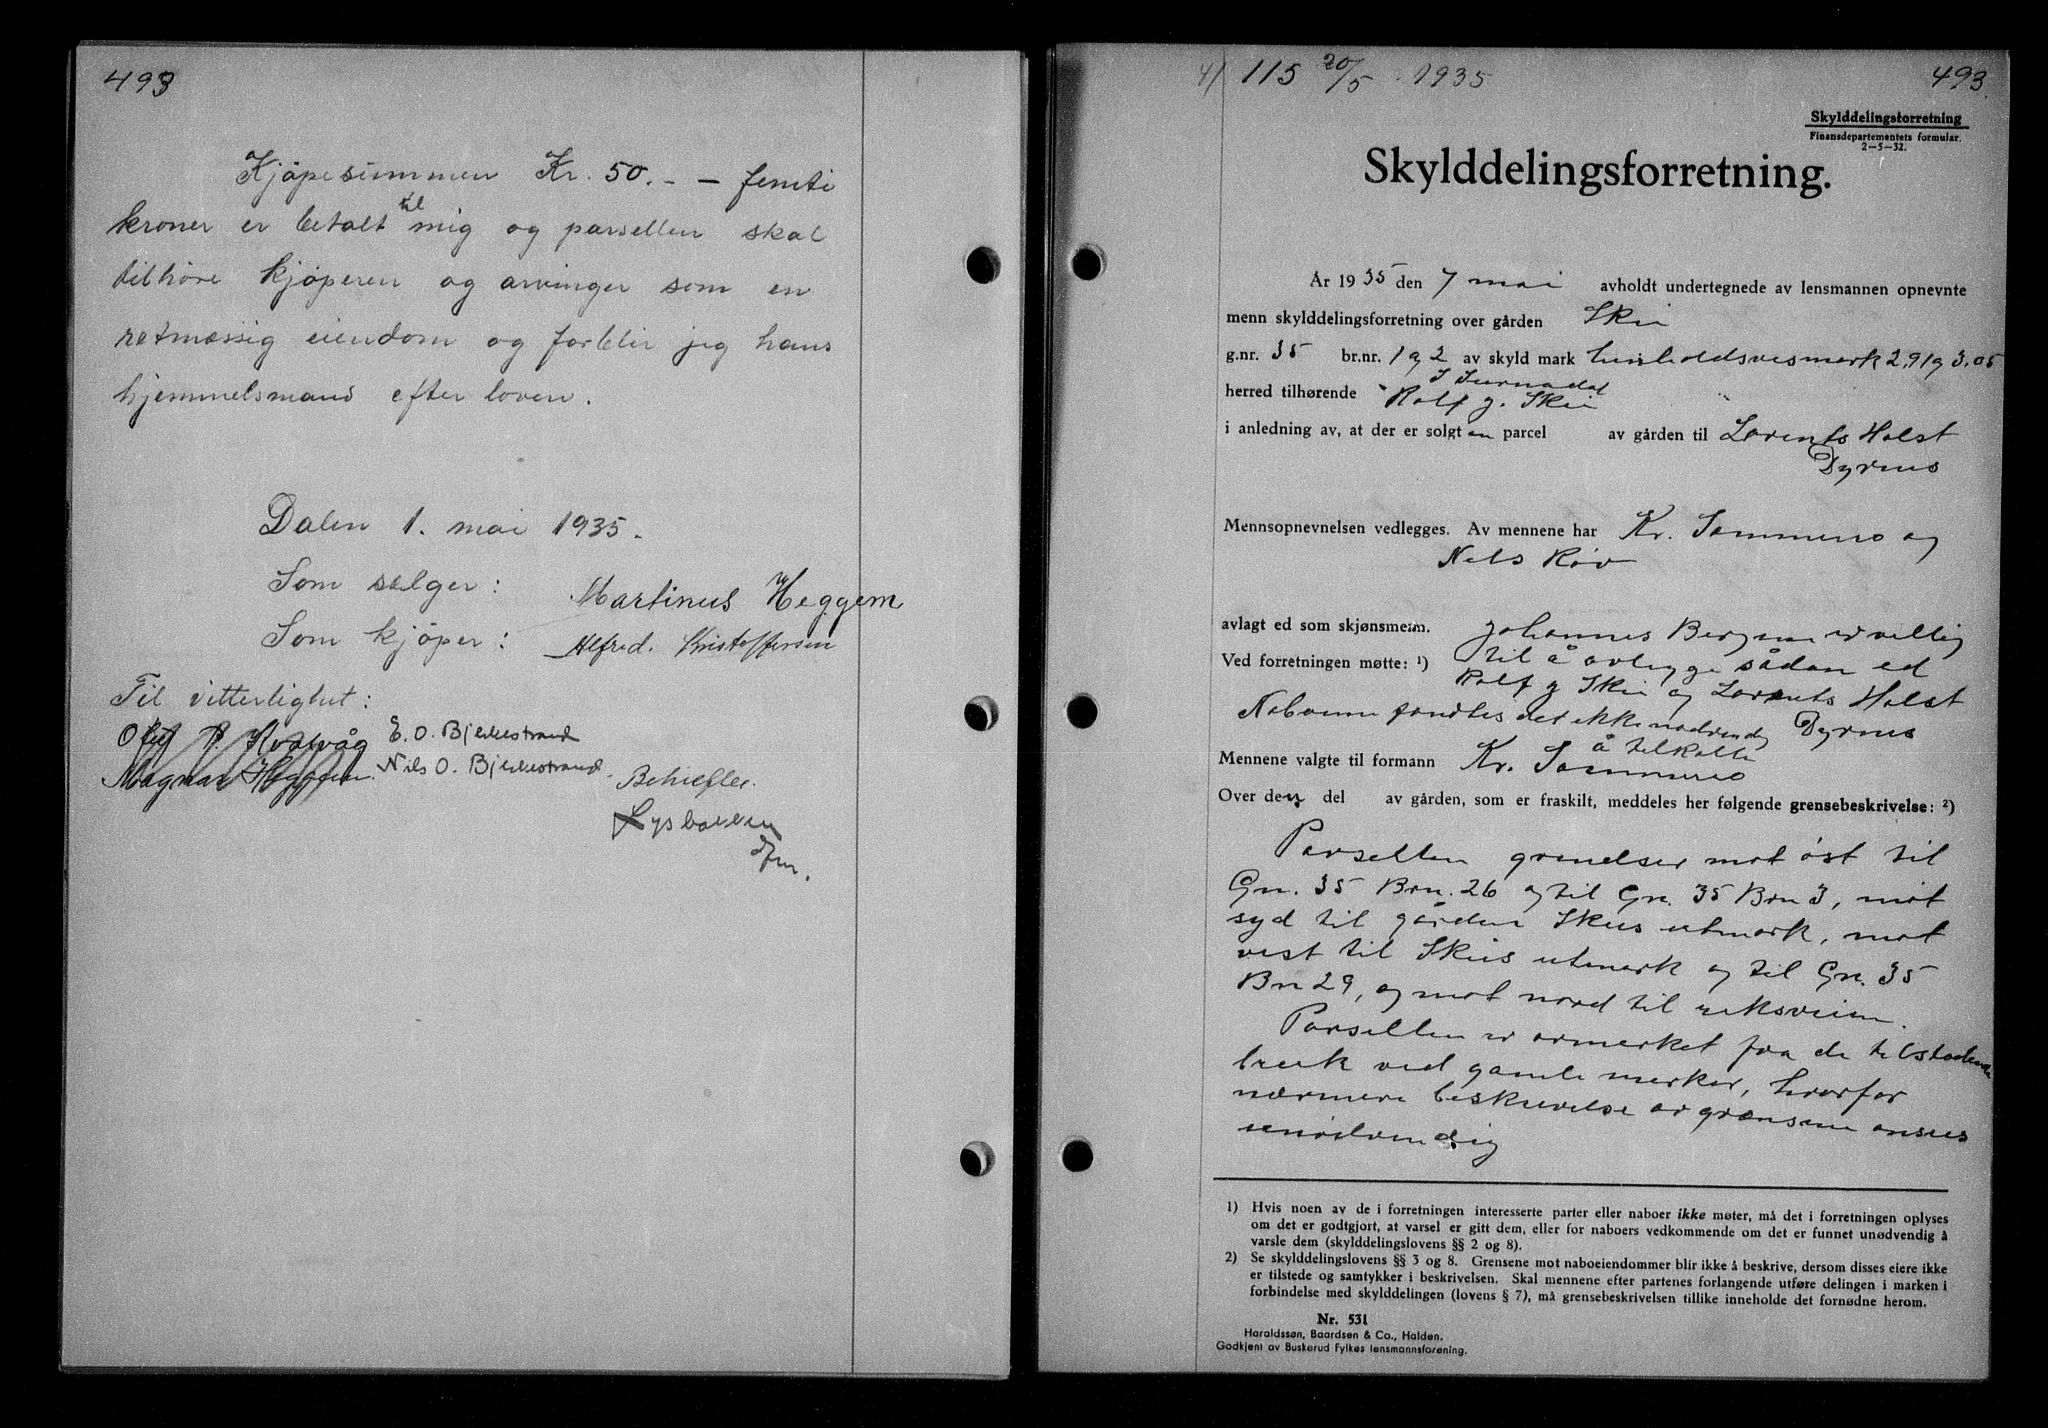 493
Kjøpesummen Kr. 50.- - femti
kroner er betalt til mig og parsellen skal
tilhöre kjøperen og arvinger som en
retmæssig eiendom og forblir jeg hans
hjemmelsmand efter loven.
Dalen 1. mai 1935.
Som sælger: Martinus Heggem
Som kjøper: Alfred. Kristoffersen
Til vitterlighet:
P. Kvalvåg E. O. Bjerkestrand
Magnar Heggem. Nils O. Bjerkestrand.
Bekreftes.
4/ 115 20/5 1935 493.
Skylddelingsforretning
Finansdepartementets formular.
2-5-32.
Skylddelingsforretning.
År 1935 den 7 mai avholdt undertegnede av lensmannen opnevnte
menn skylddelingsforretning over gården Skei
g.nr. 35 br.nr. 1 og 2 av skyld mark henholdsvis mark 2,91 og 3.05
i Surnadal
herred tilhørende Rolf J. Skei
i anledning av, at der er solgt en parcel av gården til Lorents Holst
Dyrnes
Mennsopnevnelsen vedlegges. Av mennene har Kr. Sommerro og
Nils Røv
avlagt ed som skjønsmenn. Johannes Bergem er villig
Ved forretningen møtte: 1) til å avlegge sådan ed
Rolf J. Skei og Lorents Holst
Naboerne fandtes det ikke nødvendig Dyrnes
å tilkalle
Mennene valgte til formann Kr. Sommerro
Over den del av gården, som er fraskilt, meddeles her følgende grensebeskrivelse: 2)
Parsellen grendser mot øst til
Gn. 35 Brn. 26 og til Gn. 35 Brn 3, mot
syd til gården Skeis utmark, mot
vest til Skeis utmark og til Gn. 35
Bn 29, og mot nord til riksveien.
Parsellen er avmerket fra de tilstødende
bruk ved gamle merker, hvorfor
nærmere beskrivelse av grænsene ansees
unødvendig
1) Hvis noen av de i forretningen interesserte parter eller naboer ikke møter, må det i forretningen oplyses
om det er godtgjort, at varsel er gitt dem, eller for naboers vedkommende om det er funnet unødvendig å
varsle dem (skylddelingslovens §§ 2 og 8).
2) Se skylddelingslovens §§ 3 og 8. Grensene mot naboeiendommer blir ikke å beskrive, dersom disses eiere ikke
er tilstede og samtykker i beskrivelsen. Skal mennene efter partenes forlangende utføre delingen i marken i
forbindelse med skylddelingen (lovens § 7), må grensebeskrivelsen tillike inneholde det fornødne herom.
Nr. 531
Haraldssøn, Baardsen & Co., Halden.
Godkjent av Buskerud Fylkes lensmannsforening.